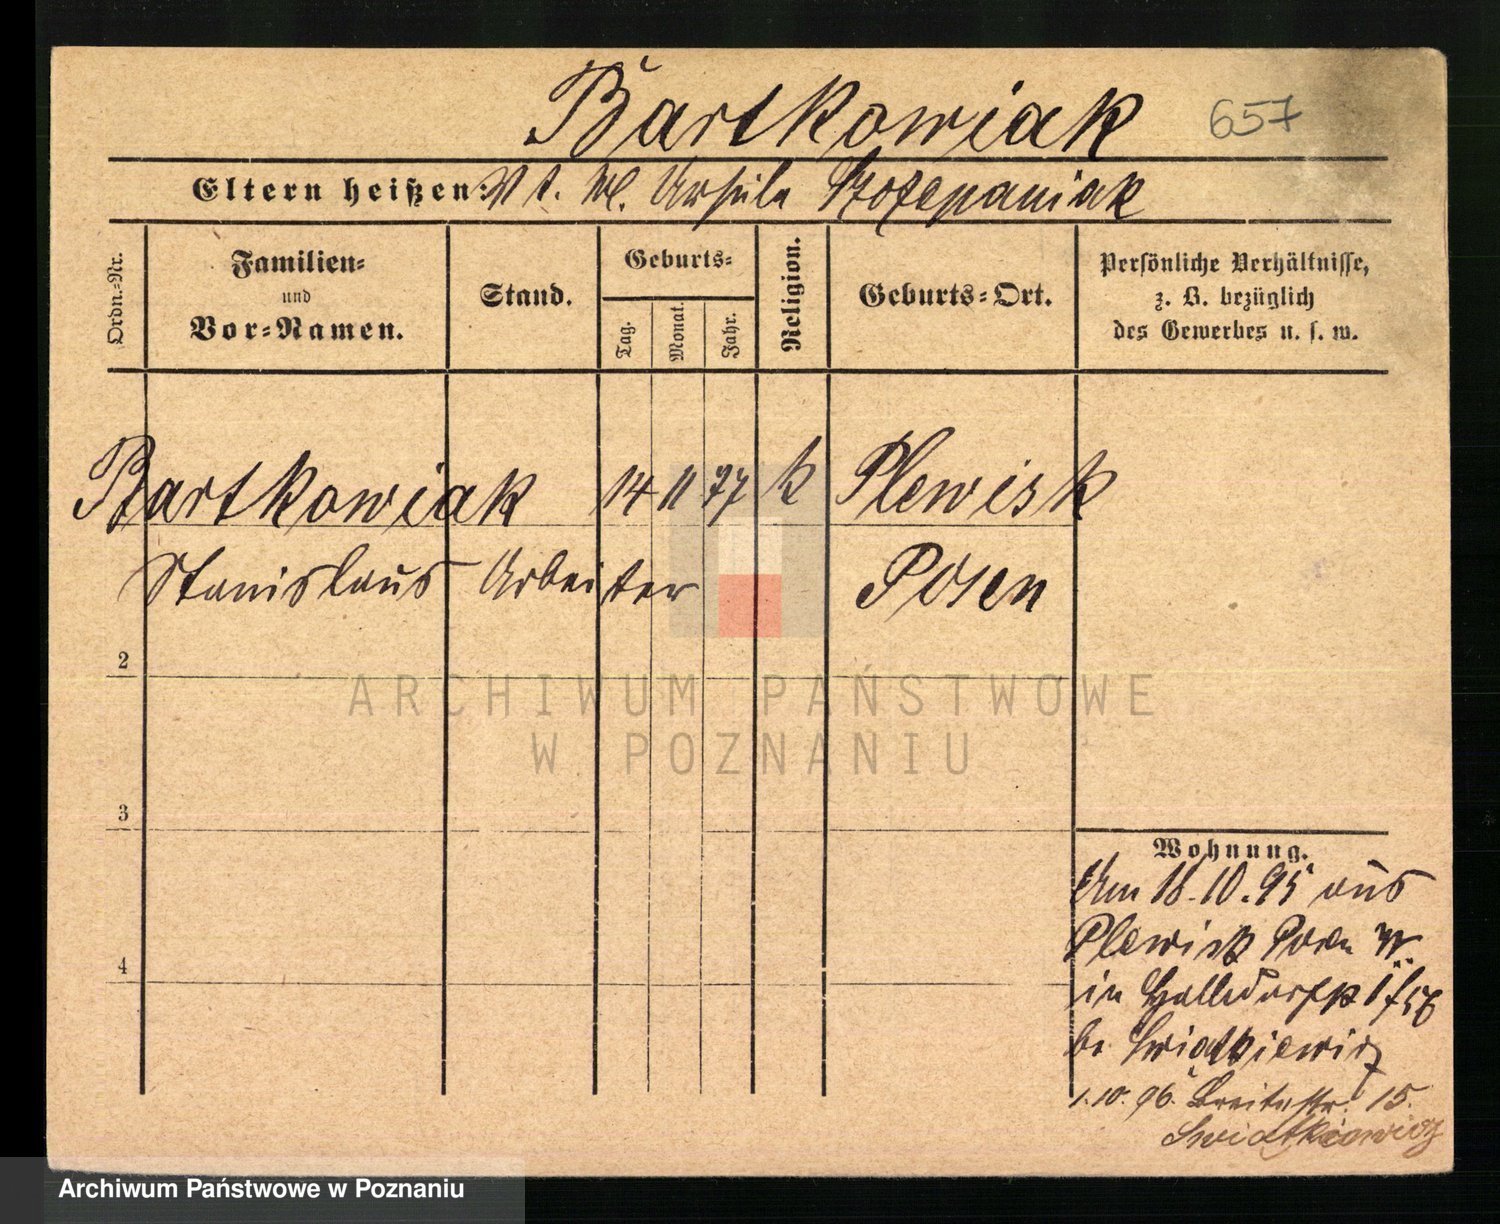 Bartkowiak 657
Eltern heißen: V t. M. Ursula Szczepaniak
Ordn.-Nr.
Familien-
und
Vor-Namen.
Stand.
Geburts-
Tag.
Monat.
Jahr.
Religion.
Geburts-Ort.
Persönliche Verhältnisse,
z. B. bezüglich
des Gewerbes u. s. w.
Bartkowiak 14 11 77 k Plewisk
Stanislaus Arbeiter Posen
2
3
4
Wohnung.
Am 18.10.95 aus
Plewisk Posen W.
in
be Swiatkiewicz
1.10.96. Breitestr. 15.
Swiatkiewicz
ARCHIWUM PAŃSTWOWE
W POZNANIU
Archiwum Państwowe w Poznaniu